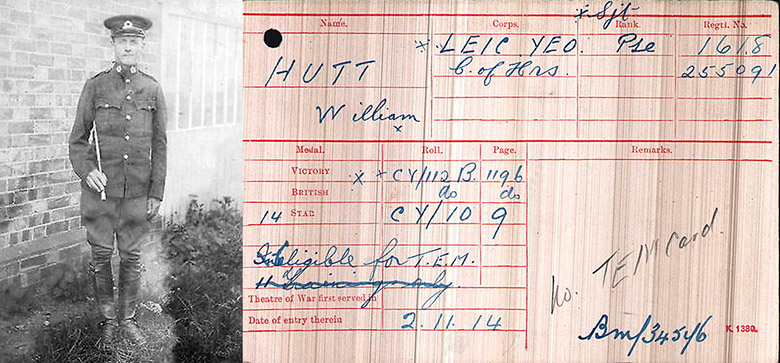 * Sjt
Name. Corps. Rank. Regtl. No.
HUTT * LEIC. YEO. Pte 1618
C. of Hrs. 255091
William
*
Medal. Roll. Page. Remarks.
VICTORY * * CY/112 B. 1196
BRITISH do do
14 STAR CY/10 9
Ineligible for T.E.M.
Training only.
no. TEM Card.
Theatre of War first served in
Date of entry therein 2.11.14
Bm/34546 K. 1380.